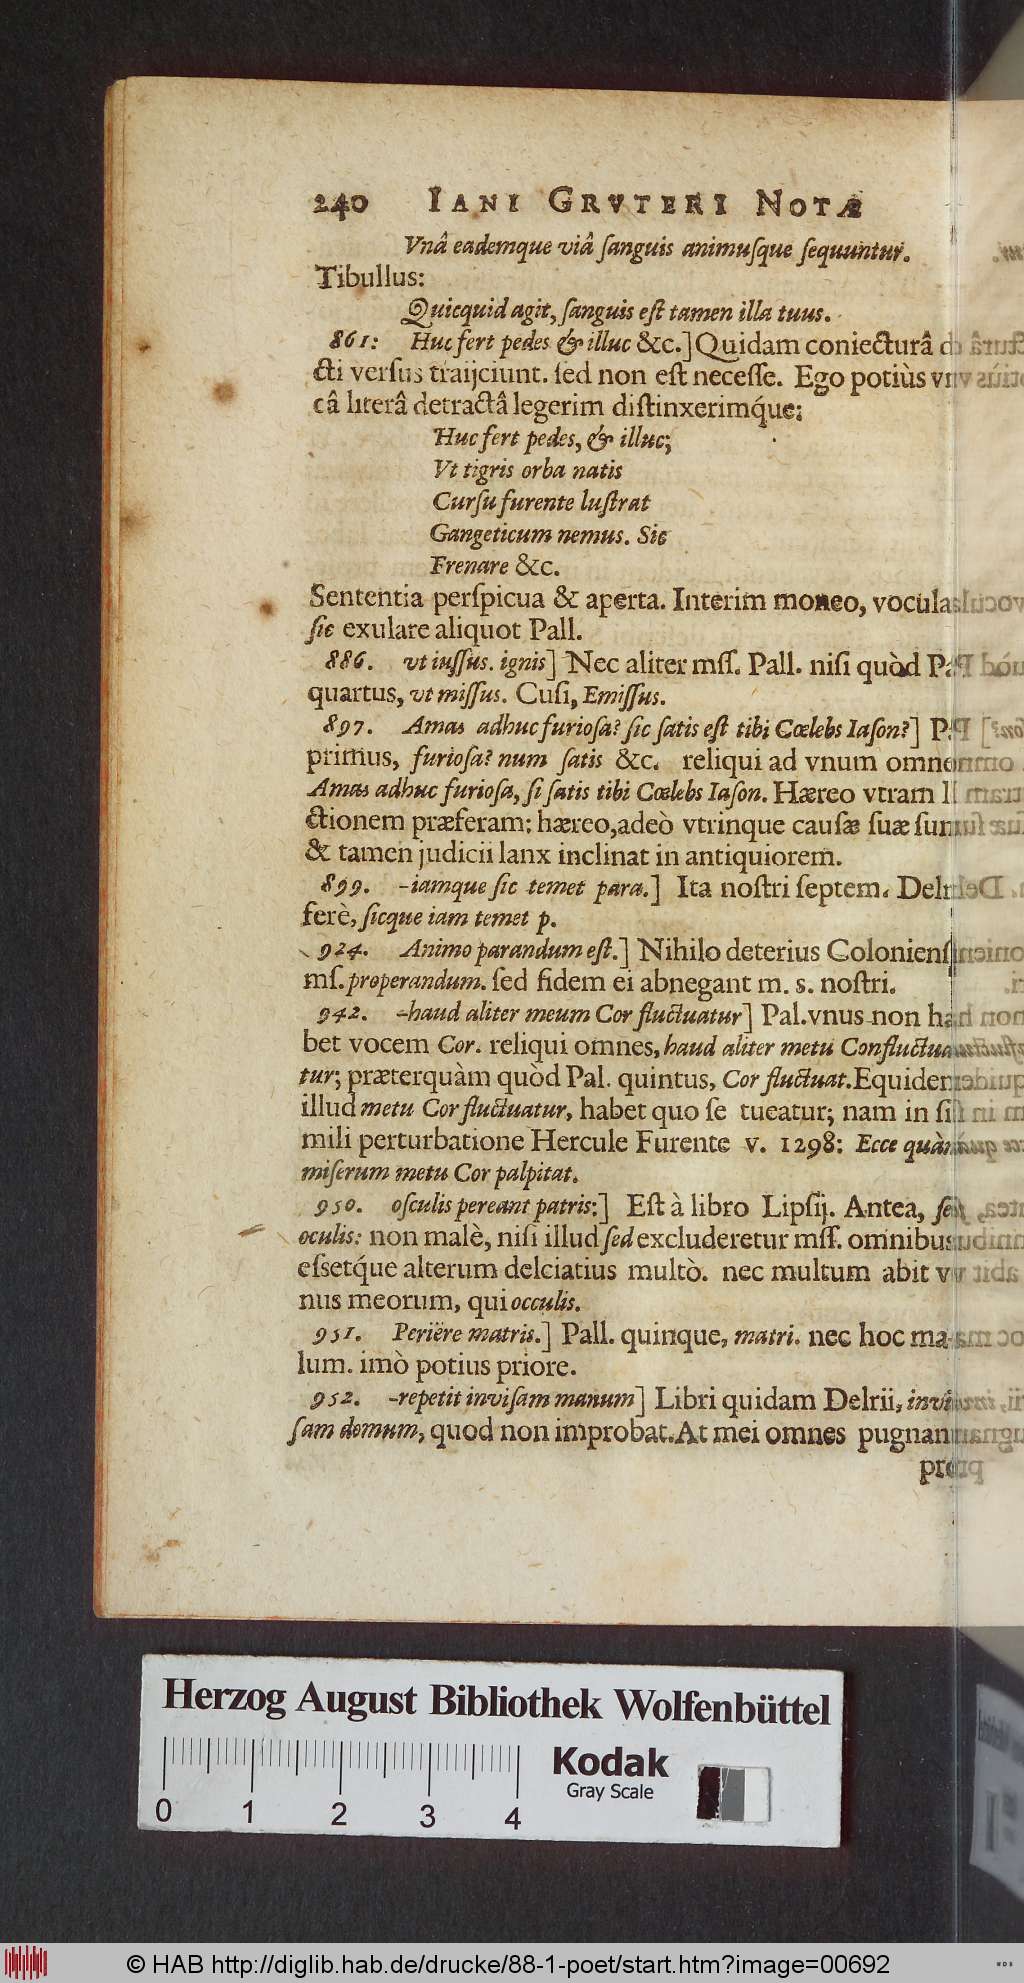 240 IANI GRVTERI NOTÆ
Vnâ eademque viâ ſanguis animuſque ſequuntur.
Tibullus:
Quicquid agit, ſanguis eſt tamen illa tuus.
861: Huc fert pedes & illuc &c.] Quidam coniecturâ
cti verſus traijciunt. ſed non eſt neceſſe. Ego potiùs vni
câ literâ detractâ legerim diſtinxerimq́ue:
Huc fert pedes, & illuc;
Vt tigris orba natis
Curſu furente luſtrat
Gangeticum nemus. Sic
Frenare &c.
Sententia perſpicua & aperta. Interim moneo, vocula
ſic exulare aliquot Pall.
886. vt iuſſus. ignis] Nec aliter mſſ. Pall. niſi quòd Pa
quartus, vt miſſus. Cuſi, Emiſſus.
897. Amas adhuc furioſa? ſic ſatis eſt tibi Cœlebs Iaſon?] P.
primus, furioſa? num ſatis &c. reliqui ad vnum omnes
Amas adhuc furioſa, ſi ſatis tibi Cœlebs Iaſon. Hæreo vtram le
ctionem præferam: hæreo, adeò vtrinque cauſæ ſuæ ſunt
& tamen judicii lanx inclinat in antiquiorem.
899. -iamque ſic temet para.] Ita noſtri ſeptem. Delr
ferè, ſicque iam temet p.
924. Animo parandum eſt.] Nihilo deterius Colonienſ
mſ. properandum. ſed fidem ei abnegant m. s. noſtri.
942. -haud aliter meum Cor fluctuatur] Pal. vnus non ha
bet vocem Cor. reliqui omnes, haud aliter metu Confluctua
tur; præterquàm quòd Pal. quintus, Cor fluctuat. Equidem
illud metu Cor fluctuatur, habet quo ſe tueatur; nam in ſi
mili perturbatione Hercule Furente v. 1298: Ecce quàm
miſerum metu Cor palpitat.
950. oſculis pereant patris:] Eſt à libro Lipſij. Antea, ſed
oculis: non malè, niſi illud ſed excluderetur mſſ. omnibus
eſsetq́ue alterum delciatius multò. nec multum abit v
nus meorum, qui occulis.
951. Periëre matris.] Pall. quinque, matri. nec hoc ma
lum. imò potius priore.
952. -repetit inviſam manum] Libri quidam Delrii, invi
ſam domum, quod non improbat. At mei omnes pugnant
pro
Herzog August Bibliothek Wolfenbüttel
Kodak
Gray Scale
0 1 2 3 4
© HAB http://diglib.hab.de/drucke/88-1-poet/start.htm?image=00692